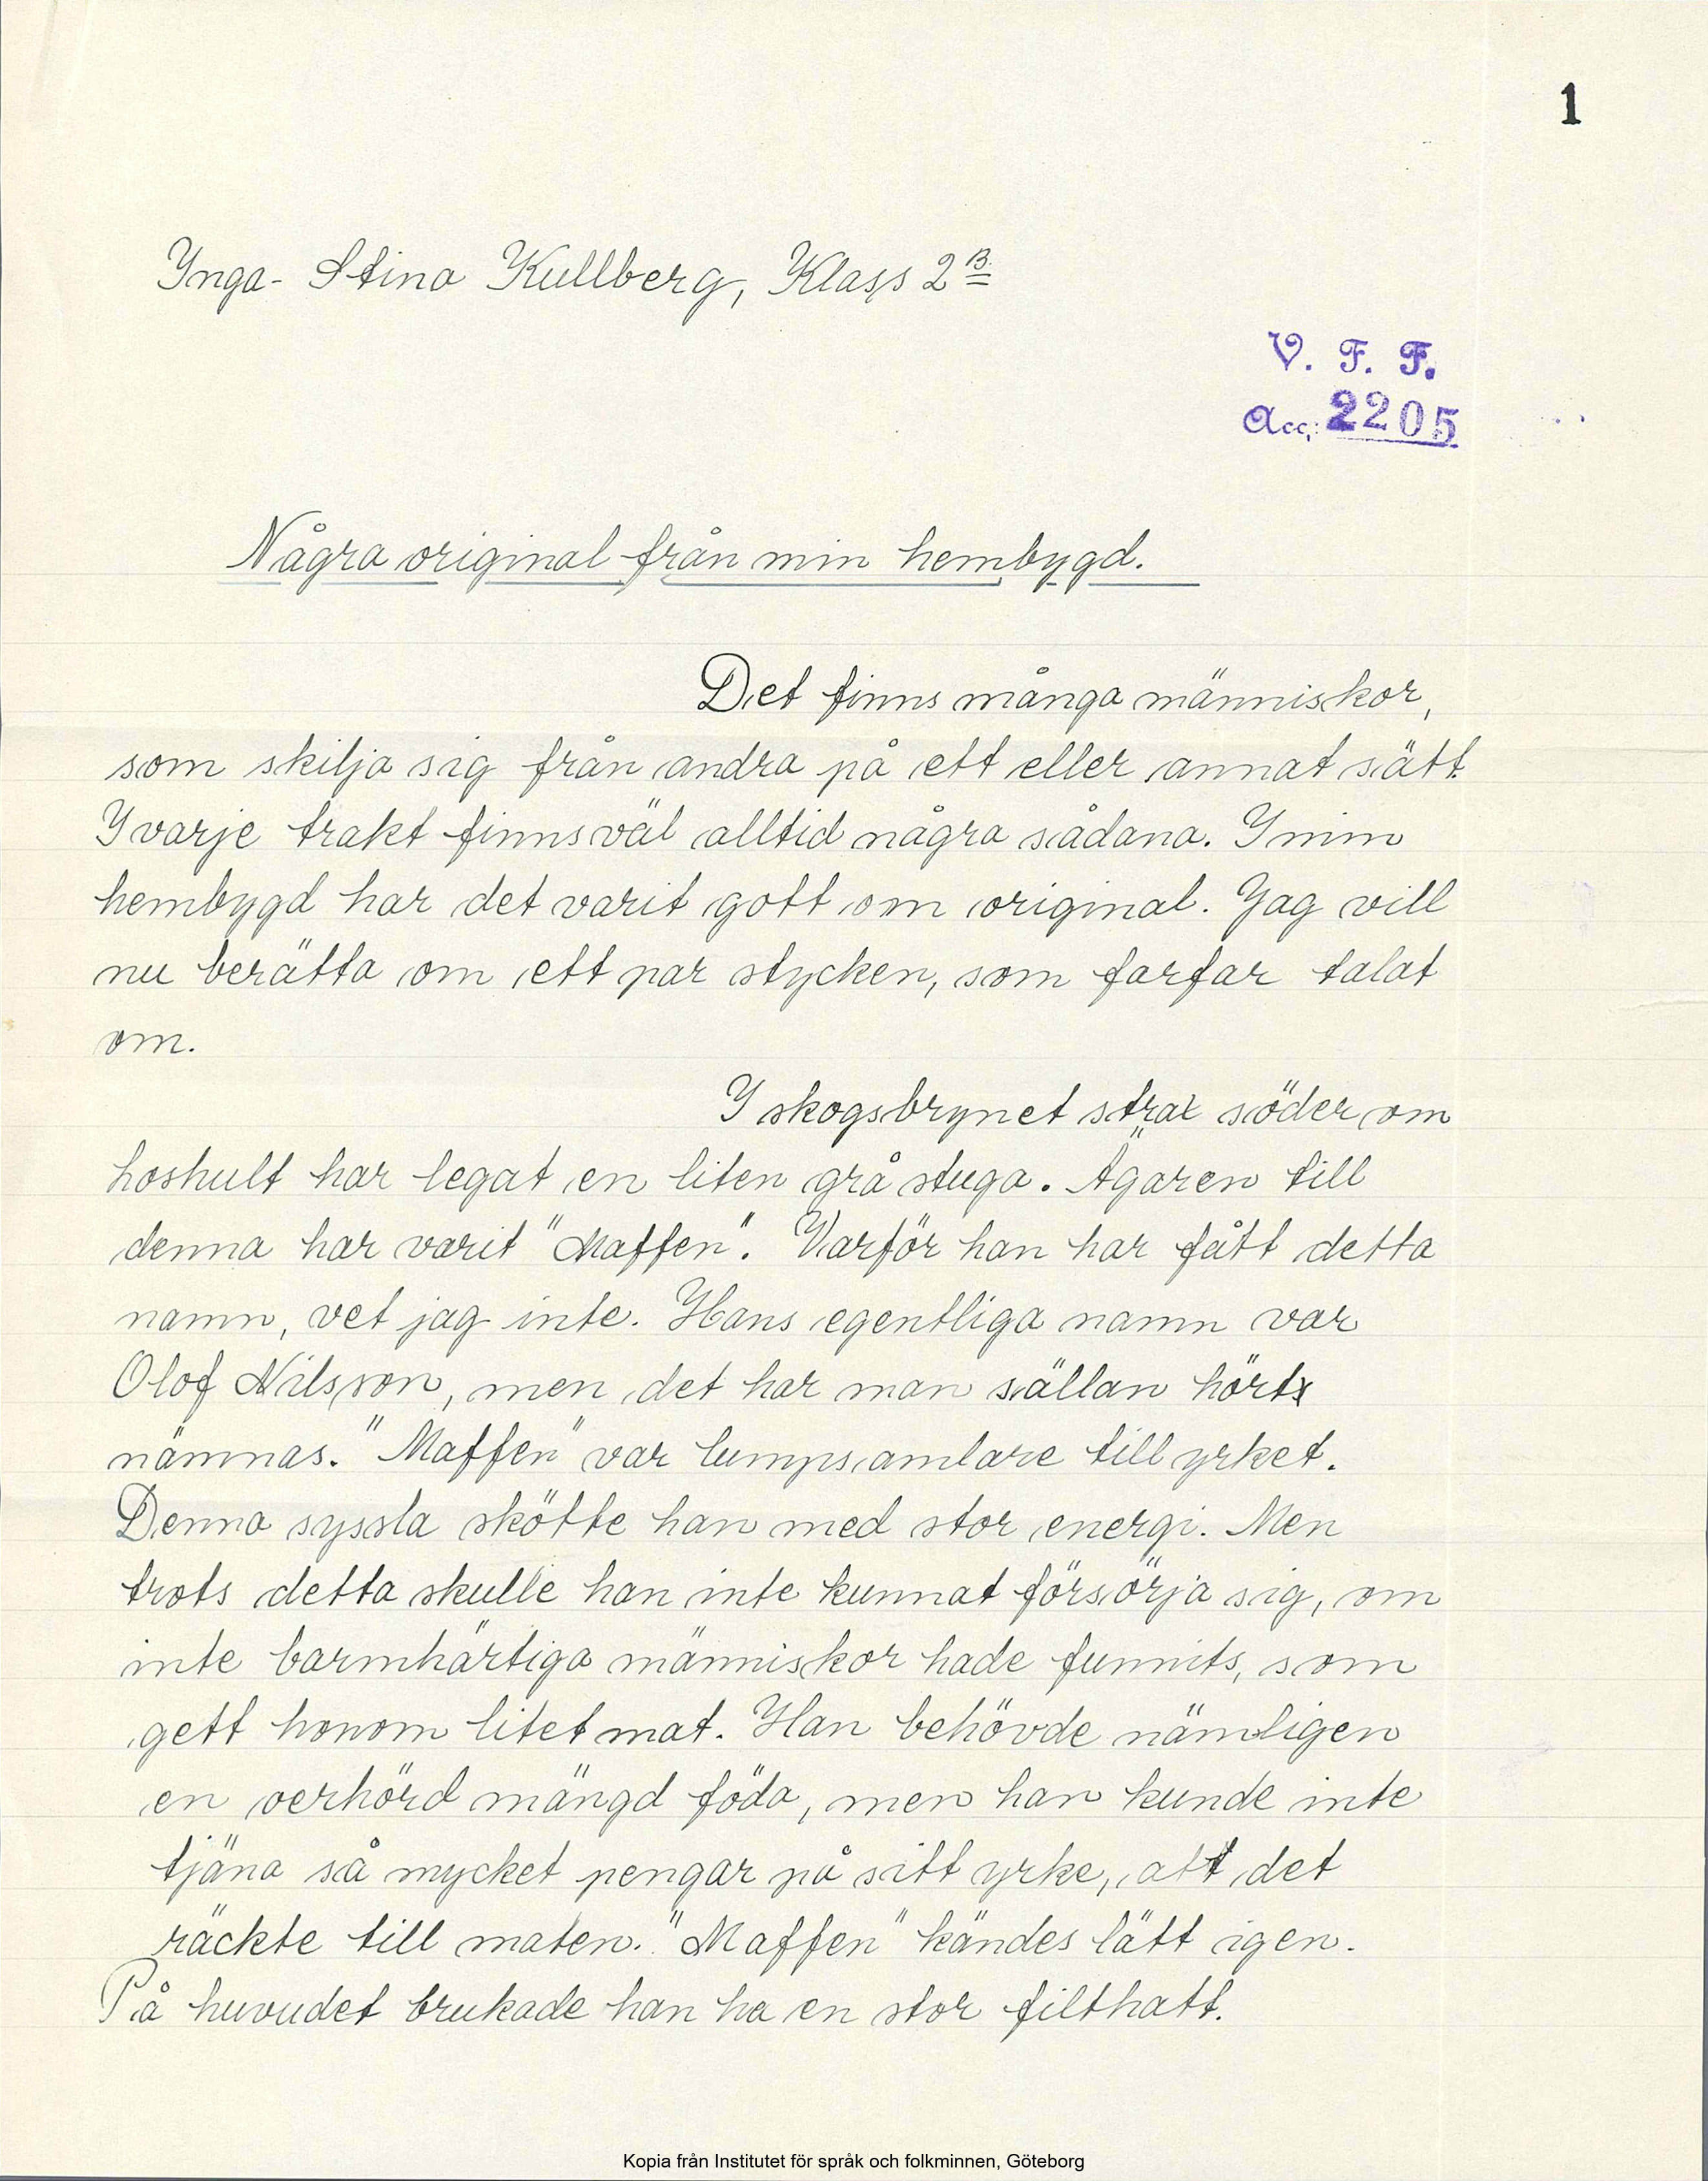 1
Inga-Stina Kullberg, Klass 2B.
V. F. F.
Acc. 2205
Några original från min hembygd.
Det finns många människor,
som skilja sig från andra på ett eller annat sätt.
I varje trakt finns väl alltid några sådana. I min
hembygd har det varit gott om original. Jag vill
nu berätta om ett par stycken, som farfar talat
om.
I skogsbrynet strax söder om
Loshult har legat en liten grå stuga. Ägaren till
denna har varit "Maffen". Varför han har fått detta
namn, vet jag inte. Hans egentliga namn var
Olof Nilsson, men det har man sällan hört
nämnas. "Maffen" var lumpsamlare till yrket.
Denna syssla skötte han med stor energi. Men
trots detta skulle han inte kunnat försörja sig, om
inte barmhärtiga människor hade funnits, som
gett honom litet mat. Han behövde nämligen
en oerhörd mängd föda, men han kunde inte
tjäna så mycket pengar på sitt yrke, att det
räckte till maten. "Maffen" kändes lätt igen.
På huvudet brukade han ha en stor filthatt.
Kopia från Institutet för språk och folkminnen, Göteborg